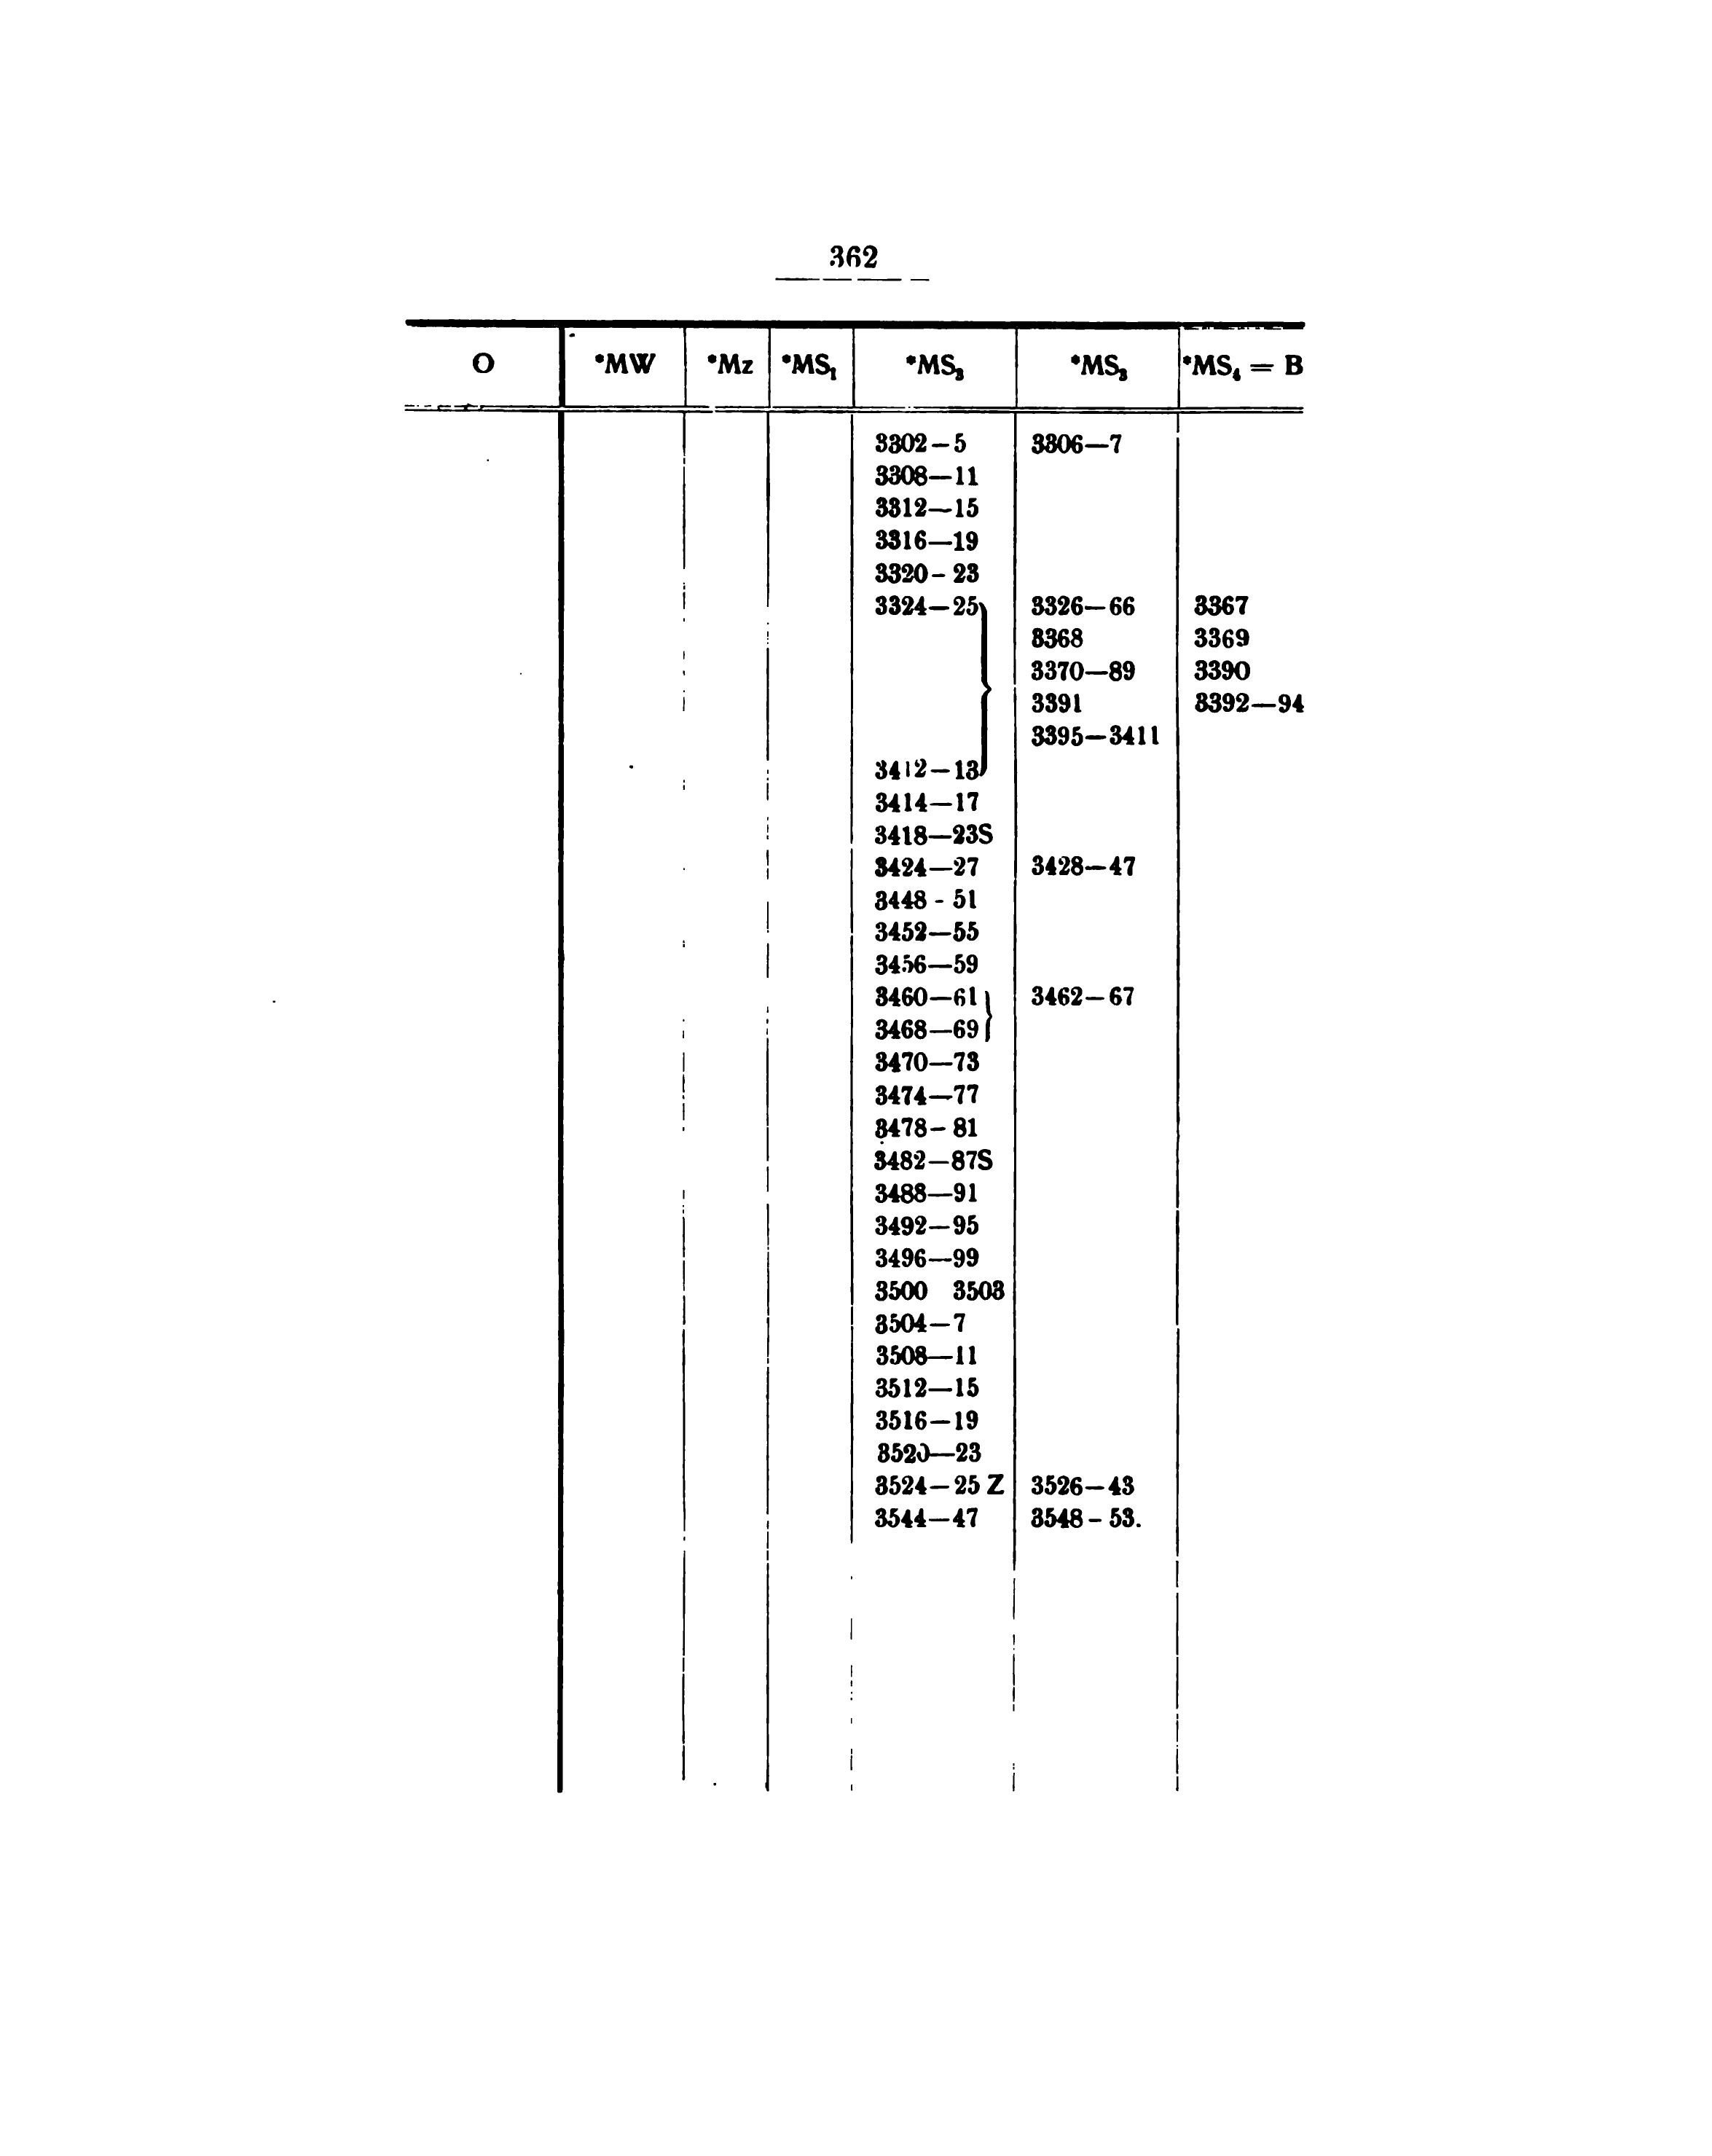 362
O *MW *Mz *MS₁ *MS₂ *MS₃ *MS₄ = B
3302—5 3306—7
3308—11
3312—15
3316—19
3320—23
3324—25} 3326—66 3367
3368 3369
3370—89 3390
3391 3392—94
3395—3411
3412—13
3414—17
3418—23S
3424—27 3428—47
3448-51
3452—55
3456—59
3460—61} 3462—67
3468—69
3470—73
3474—77
3478—81
3482—87S
3488—91
3492—95
3496—99
3500 3503
3504—7
3508—11
3512—15
3516—19
3520—23
3524—25 Z 3526—43
3544—47 3548—53.